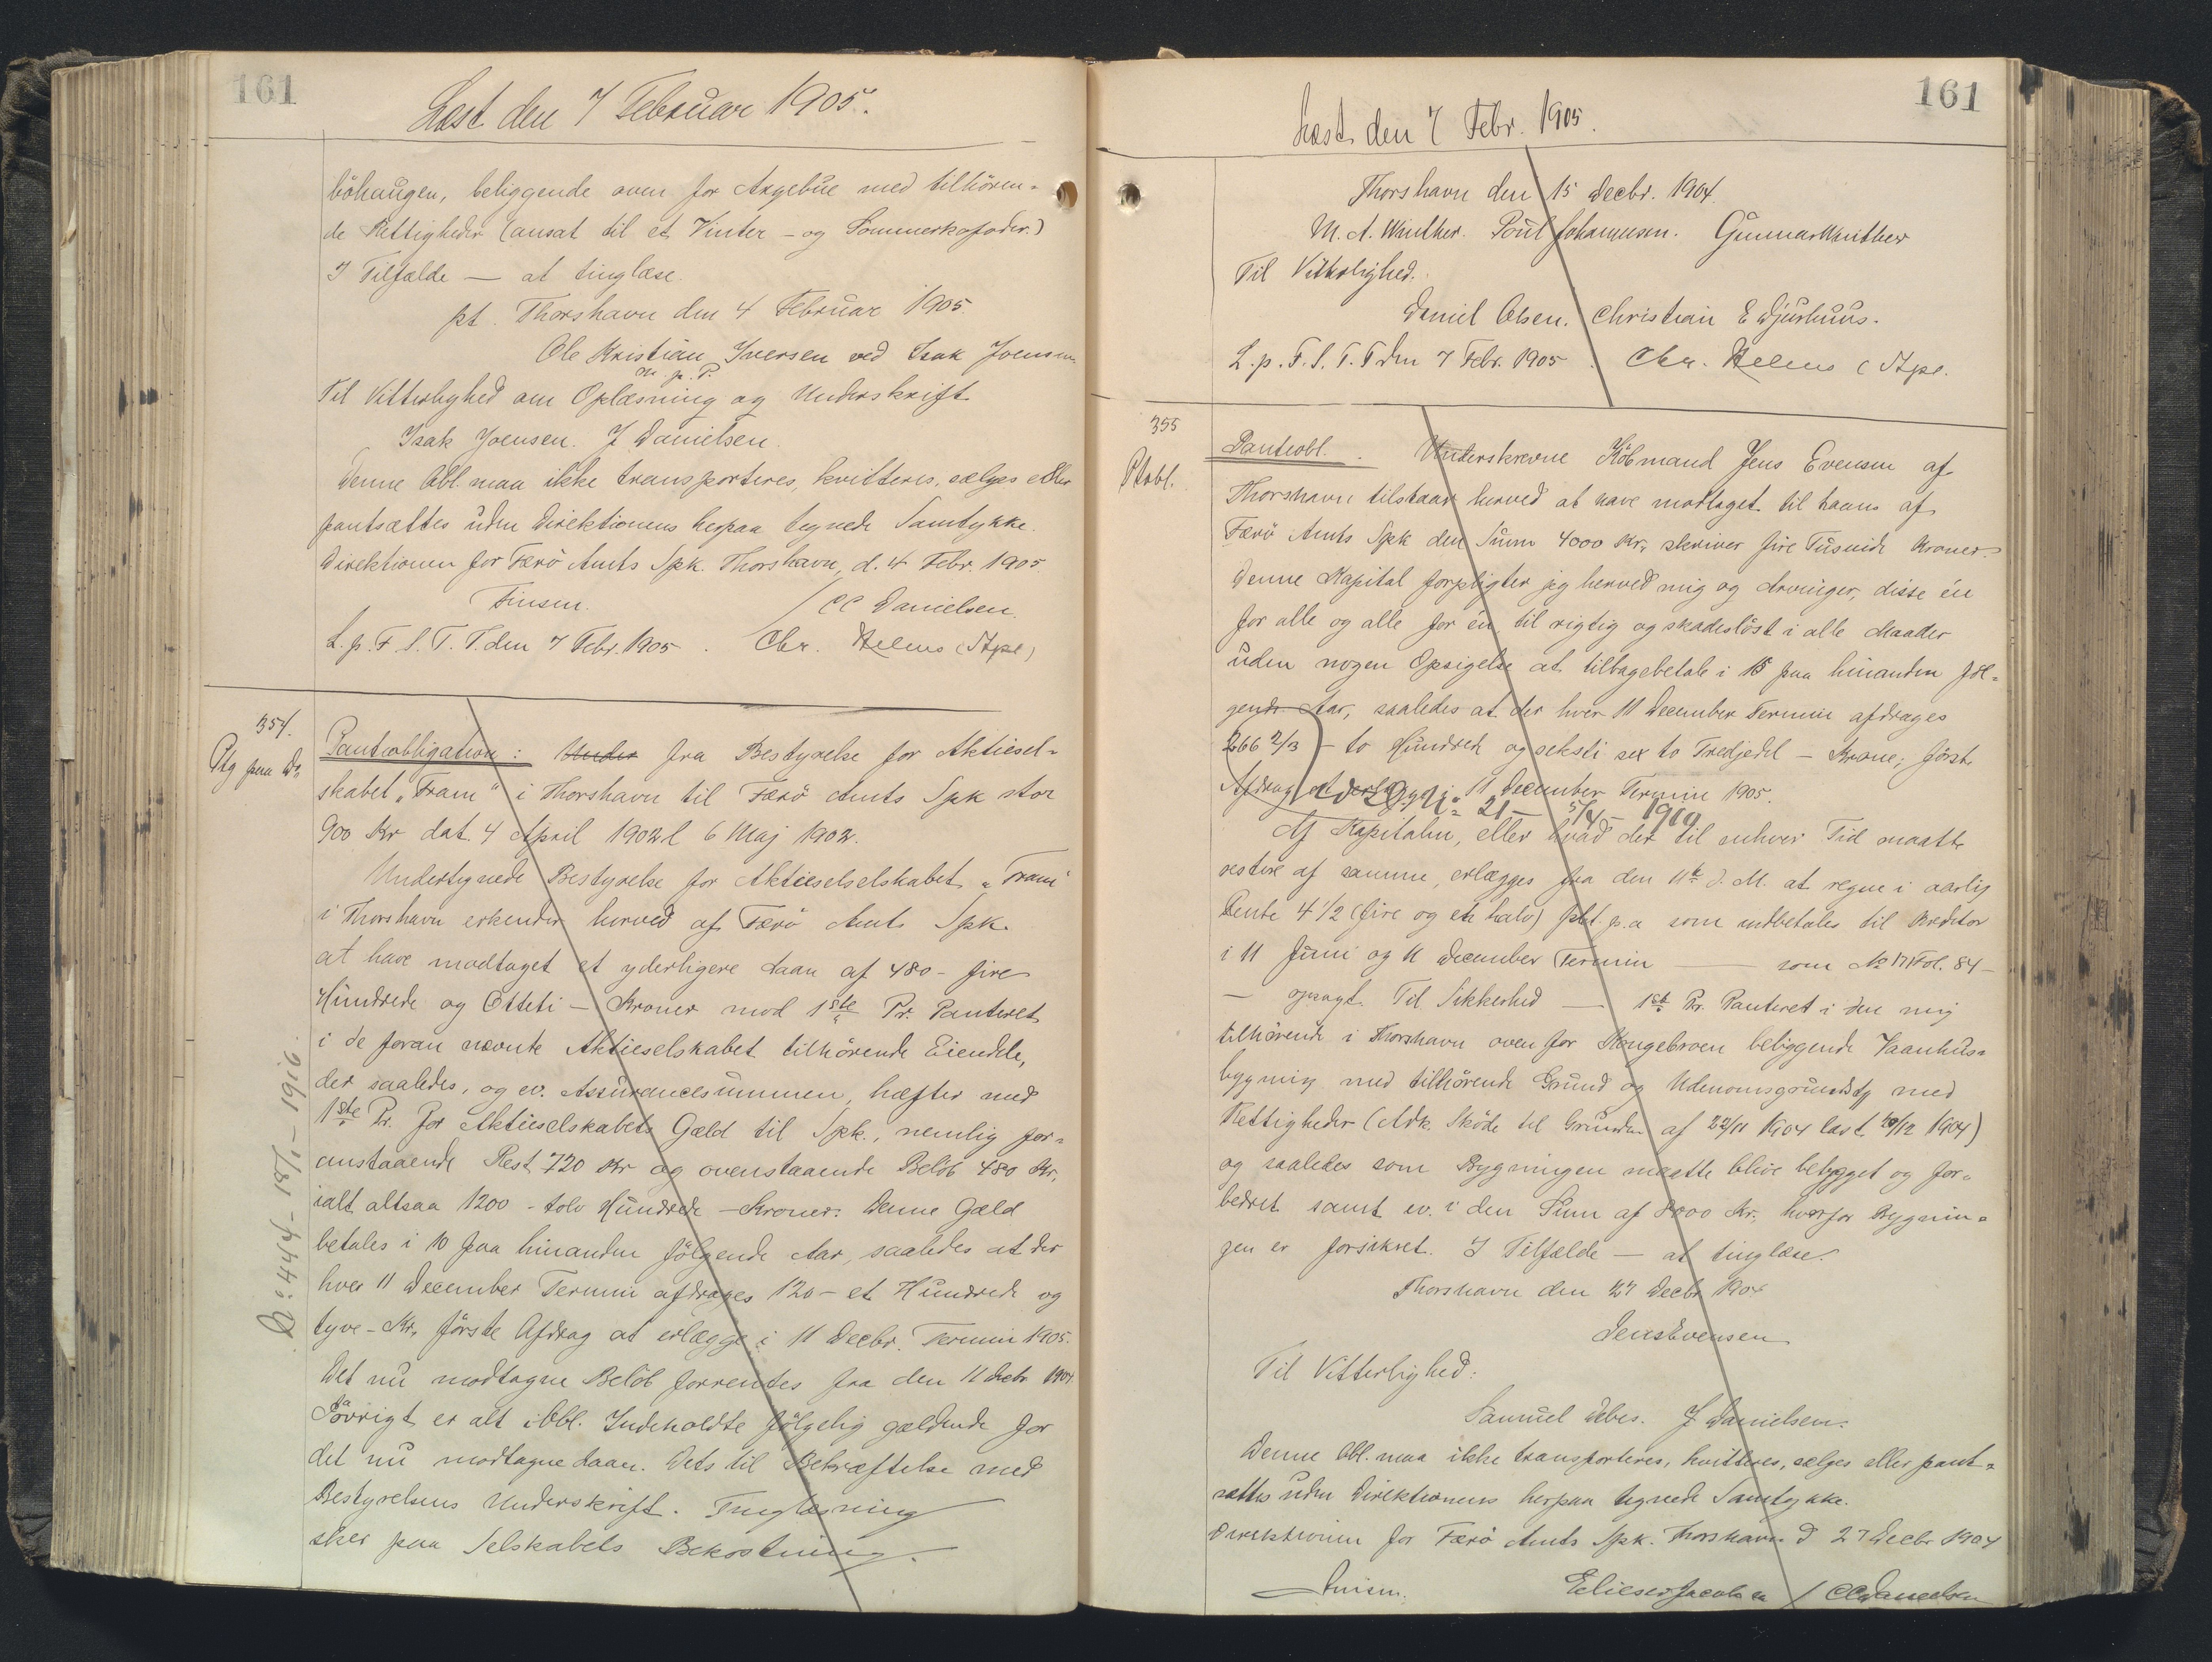 161
Læst den 7 Februar 1905.
böhaugen, beliggende oven for Argebue med tilhören-
de Rettigheder (ansat til et Vinter - og Sommerkofoder.)
I Tilfælde — at tinglæse.
pt. Thorshavn den 4 Februar 1905.
Ole Kristian Iversen ved Isak Joensen
m. p. P.
Til Vitterlighed om Oplæsning og Underskrift
Isak Joensen. J Danielsen.
Denne Obl. maa ikke transporteres, kvitteres, sælges eller
pantsættes uden Direktionens herpaa tegnede Samtykke.
Direktionen for Færö Amts Spk. Thorshavn, d. 4 Febr. 1905.
Finsen. / CC Danielsen.
L. p. F. S. T. T. den 7 Febr. 1905. Chr. Helms (Stpl)
354.
Ptg paa Do
Panteobligation: Under fra Bestyrelse for Aktiesel-
skabet „Fram“ i Thorshavn til Færö Amts Spk stor
900 Kr dat. 4 April 1902 l 6 Maj 1902.
Undertegnede Bestyrelse for Aktieselselskabet „Fram“
i Thorshavn erkender herved af Færö Amts Spk.
at have modtaget et yderligere Laan af 480 - fire
Hundrede og Otteti - Kroner mod 1ste Pr. Panteret
i de foran nævnte Aktieselskabet tilhörende Eiendele,
der saaledes, og ev. Assurancesummen, hæfter med
1ste Pr. for Aktieselskabets Gæld til Spk., nemlig for-
anstaaende Rest 720 Kr og ovenstaaende Belöb 480 Kr,
ialt altsaa 1200 - tolv Hundrede - Kroner. Denne Gæld
betales i 10 paa hinanden fölgende Aar, saaledes at der
hver 11 December Termin afdrages 120 - et Hundrede og
tyve - Kr, förste Afdrag at erlægge i 11 Decbr. Termin 1905.
Det nu modtagne Belöb forrentes fra den 11 Decbr 1904.
Iövrigt er alt i Obl. Indeholdte fölgelig gældende for
det nu modtagne Laan. Dets til Bekræftelse med
Bestyrelsens Underskrift. Tinglæsning
sker paa Selskabets Bekostning.
161
Læst den 7 Febr. 1905.
Thorshavn den 15 Decbr. 1904.
M. A. Winther. Poul Johannesen. Gunnar Winther
Til Vitterlighed.
Daniel Olsen. Christian E Djurhuus.
L. p. F. S. T. T den 7 Febr. 1905. Chr. Helms (Stpl.
355
Ptobl.
Panteobl. Underskrevne Köbmand Jens Evensen af
Thorshavn tilstaar herved at have modtaget til Laans af
Færö Amts Spk den Sum 4000 Kr, skriver fire Tusinde Kroner.
Denne Kapital forpligter jeg herved mig og Arvinger, disse én
for alle og alle for én, til rigtig og skadeslöst i alle Maader
uden nogen Opsigelse at tilbagebetale i 15 paa hinanden föl-
gende Aar, saaledes at der hver 11 December Termin afdrages
266 2/3 - to Hundred og seksti sex to Tredjedel - Krone; förste
Afdrag at erlægge i 11 December Termin 1905.
21 - 5/4 - 1910
Af Kapitalen, eller hvad der til enhver Tid maatte
restere af samme, erlægges fra den 11te d. M. at regne i aarlig
Rente 4 1/2 (fire og en halv) pCt. p. a som indbetales til Kreditor
i 11 Juni og 11 December Termin — som № 171 Fol. 84 —
— opsagt. Til Sikkerhed — 1ste Pr. Panteret i den mig
tilhörende i Thorshavn oven for Kongebroen beliggende Vaanhus-
bygning med tilhörende Grund og Udenomsgrundstk med
Rettigheder (Adk. Sköde til Grunden af 22/11 1904 læst 20/12 1904)
og saaledes som Bygningen maatte blive bebygget og for-
bedret samt ev. i den Sum af 8000 Kr, hvorfor Bygnin-
gen er forsikret. I Tilfælde — at tinglæse.
Thorshavn den 27 Decbr 1904
Jens Evensen
Til Vitterlighed:
Samuel Debes. J Danielsen.
Denne Obl. maa ikke transporteres, kvitteres, sælges eller pant-
sættes uden Direktionens herpaa tegnede Samtykke.
Direktionen for Færö Amts Spk. Thorshavn d 27 Decbr 1904
Finsen. Elieser Jacobsen / CC Danielsen